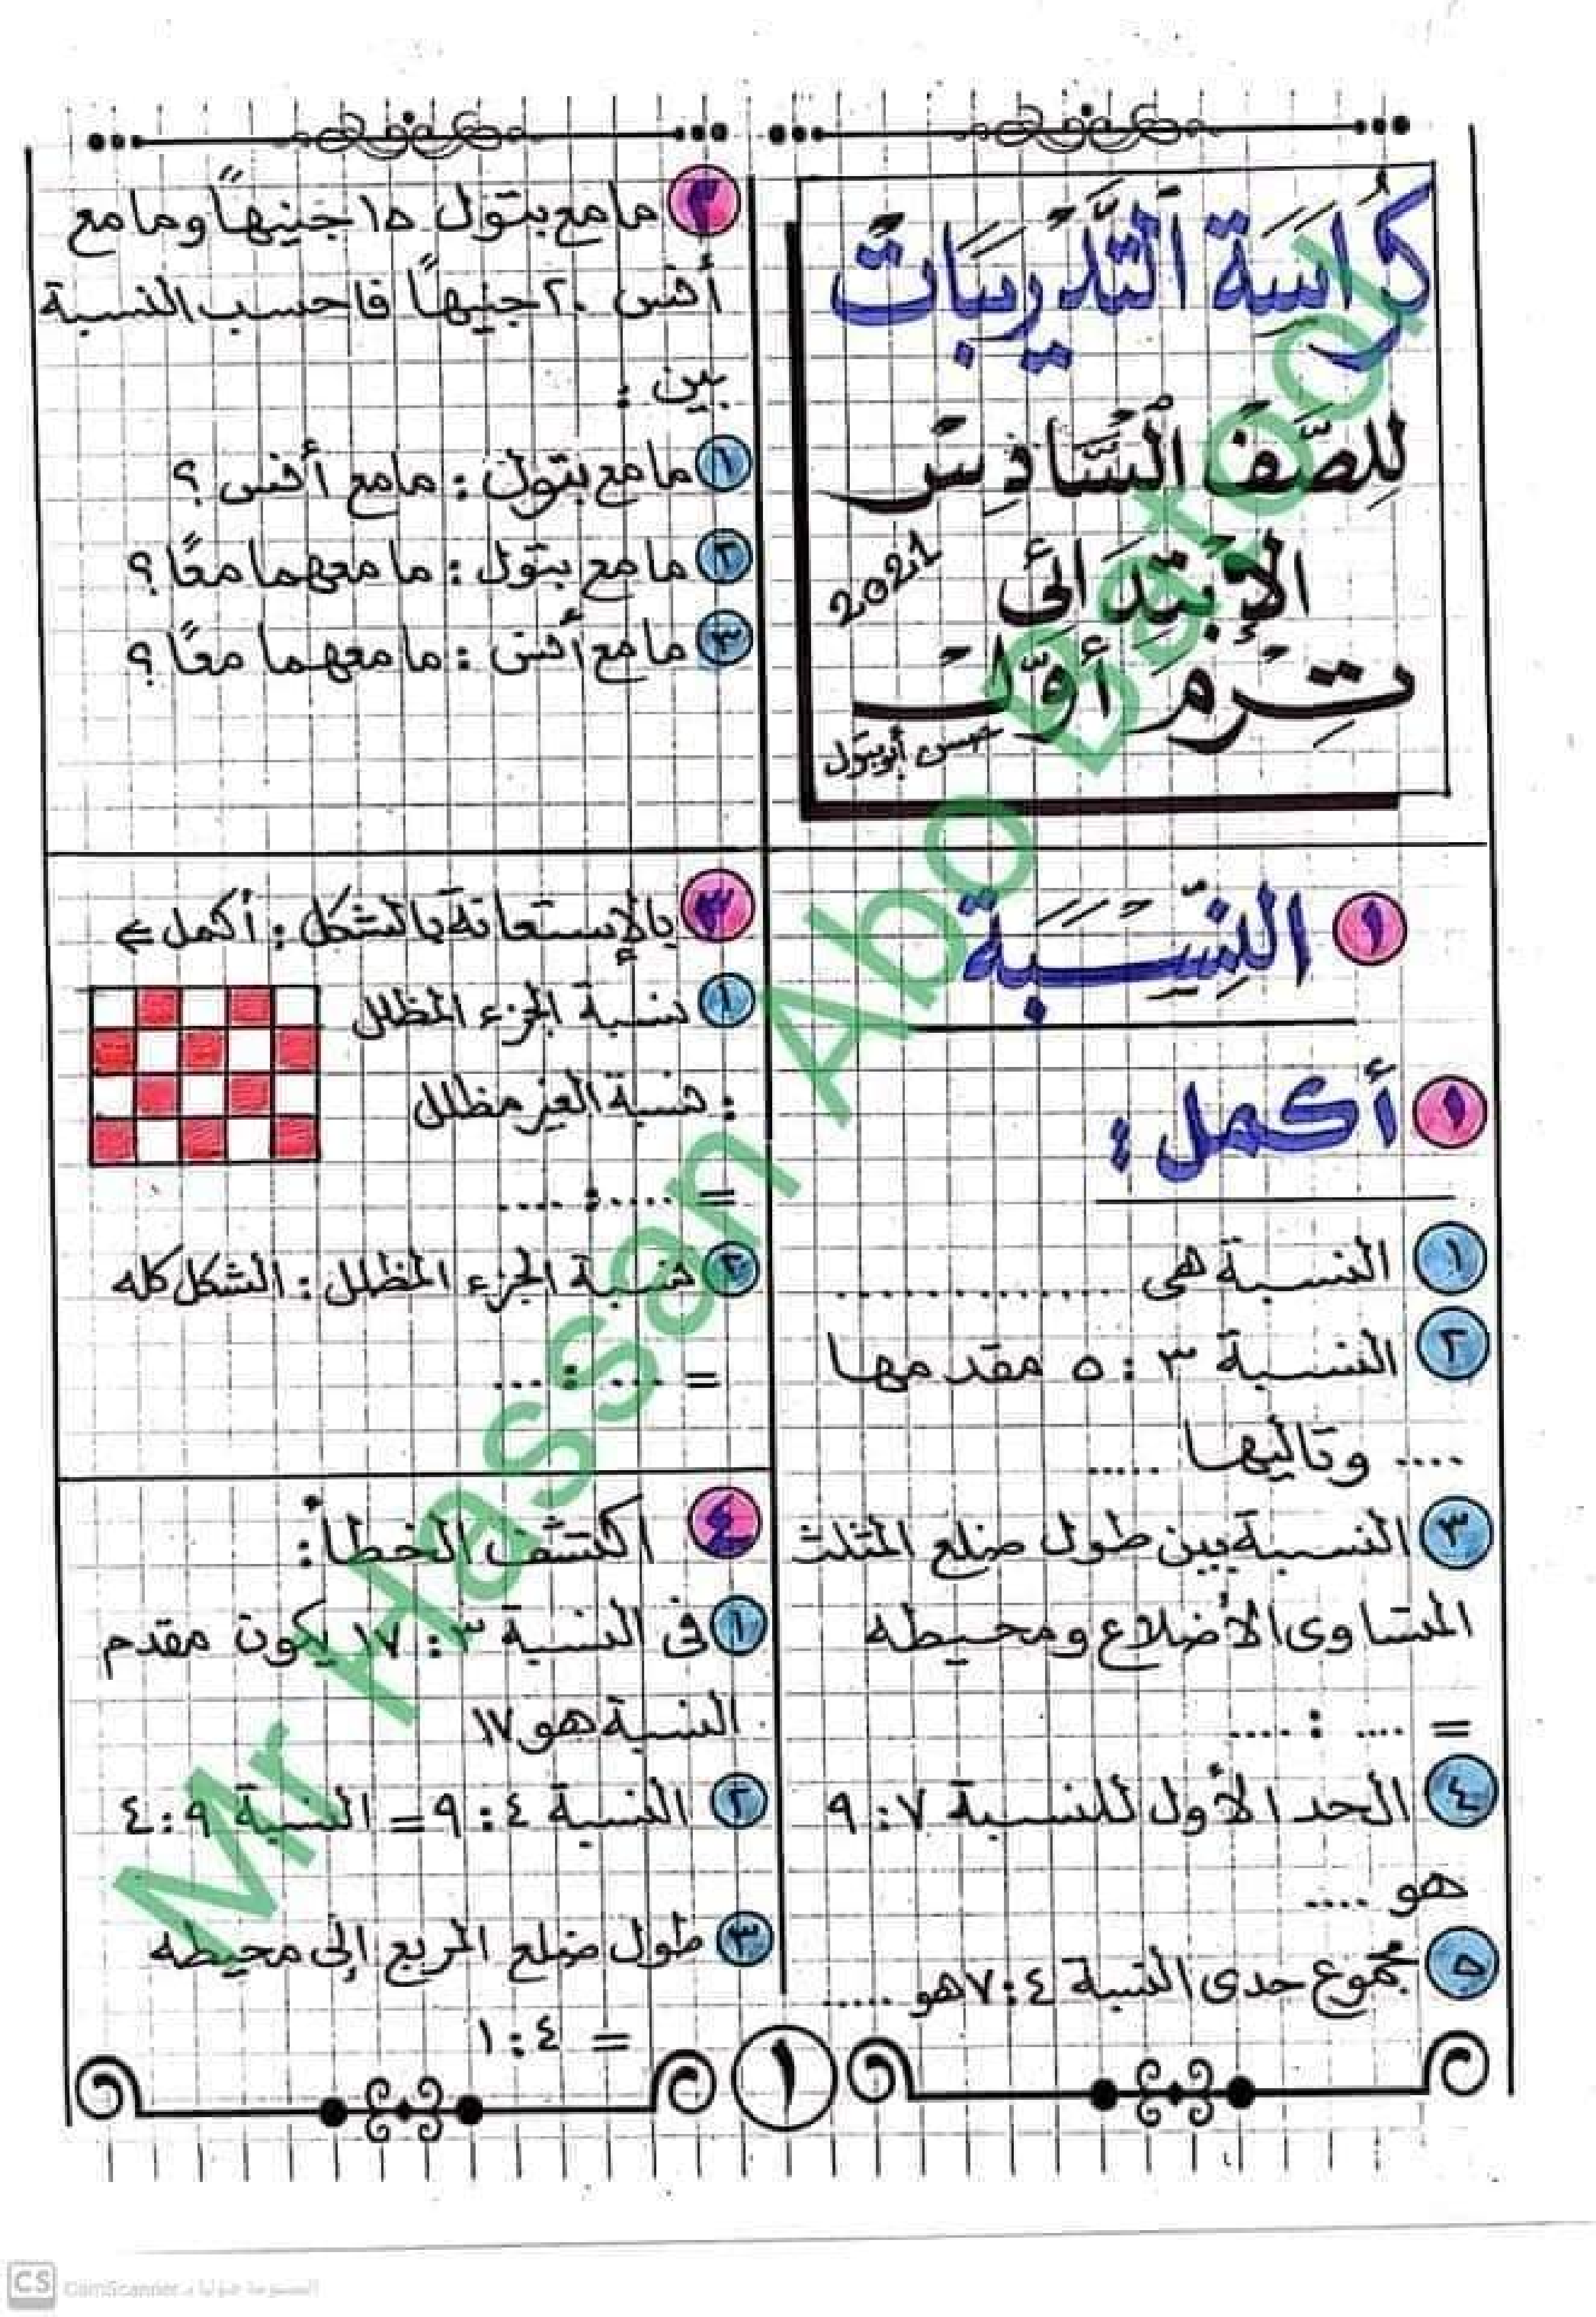 كُرَّاسَة التَّدْرِيبَات
لِلصَّف السَّادِس
الابْتِدَائى
2021
تِرْم أوَّل
حسن أبو بتول
١ النِّسْبَة
١ أكمل :
١ النسبة هى ..............
٢ النسبة ٣ : ٥ مقدمها
.... وتاليها .....
٣ النسبة بين طول ضلع المثلث
المتساوى الأضلاع ومحيطه
= .... : ....
٤ الحد الأول للنسبة ٧ : ٩
هو ....
٥ مجموع حدى النسبة ٤ : ٧ هو .....
٢ ما مع بتول ١٥ جنيهاً وما مع
أنس ٢٠ جنيهاً فاحسب النسبة
بين :
١ ما مع بتول : ما مع أنس ؟
٢ ما مع بتول : ما معهما معًا ؟
٣ ما مع أنس : ما معهما معًا ؟
٣ بالإستعانة بالشكل : أكمل
١ نسبة الجزء المظلل
: نسبة الغير مظلل
= .... : ....
٢ نسبة الجزء المظلل : الشكل كله
= ... : ...
٤ اكتشف الخطأ :
١ فى النسبة ٣ : ١٧ يكون مقدم
النسبة هو ١٧
٢ النسبة ٤ : ٩ = النسبة ٩ : ٤
٣ طول ضلع المربع إلى محيطه
= ٤ : ١
١
Mr Hassan Abo Batool
CS CamScanner